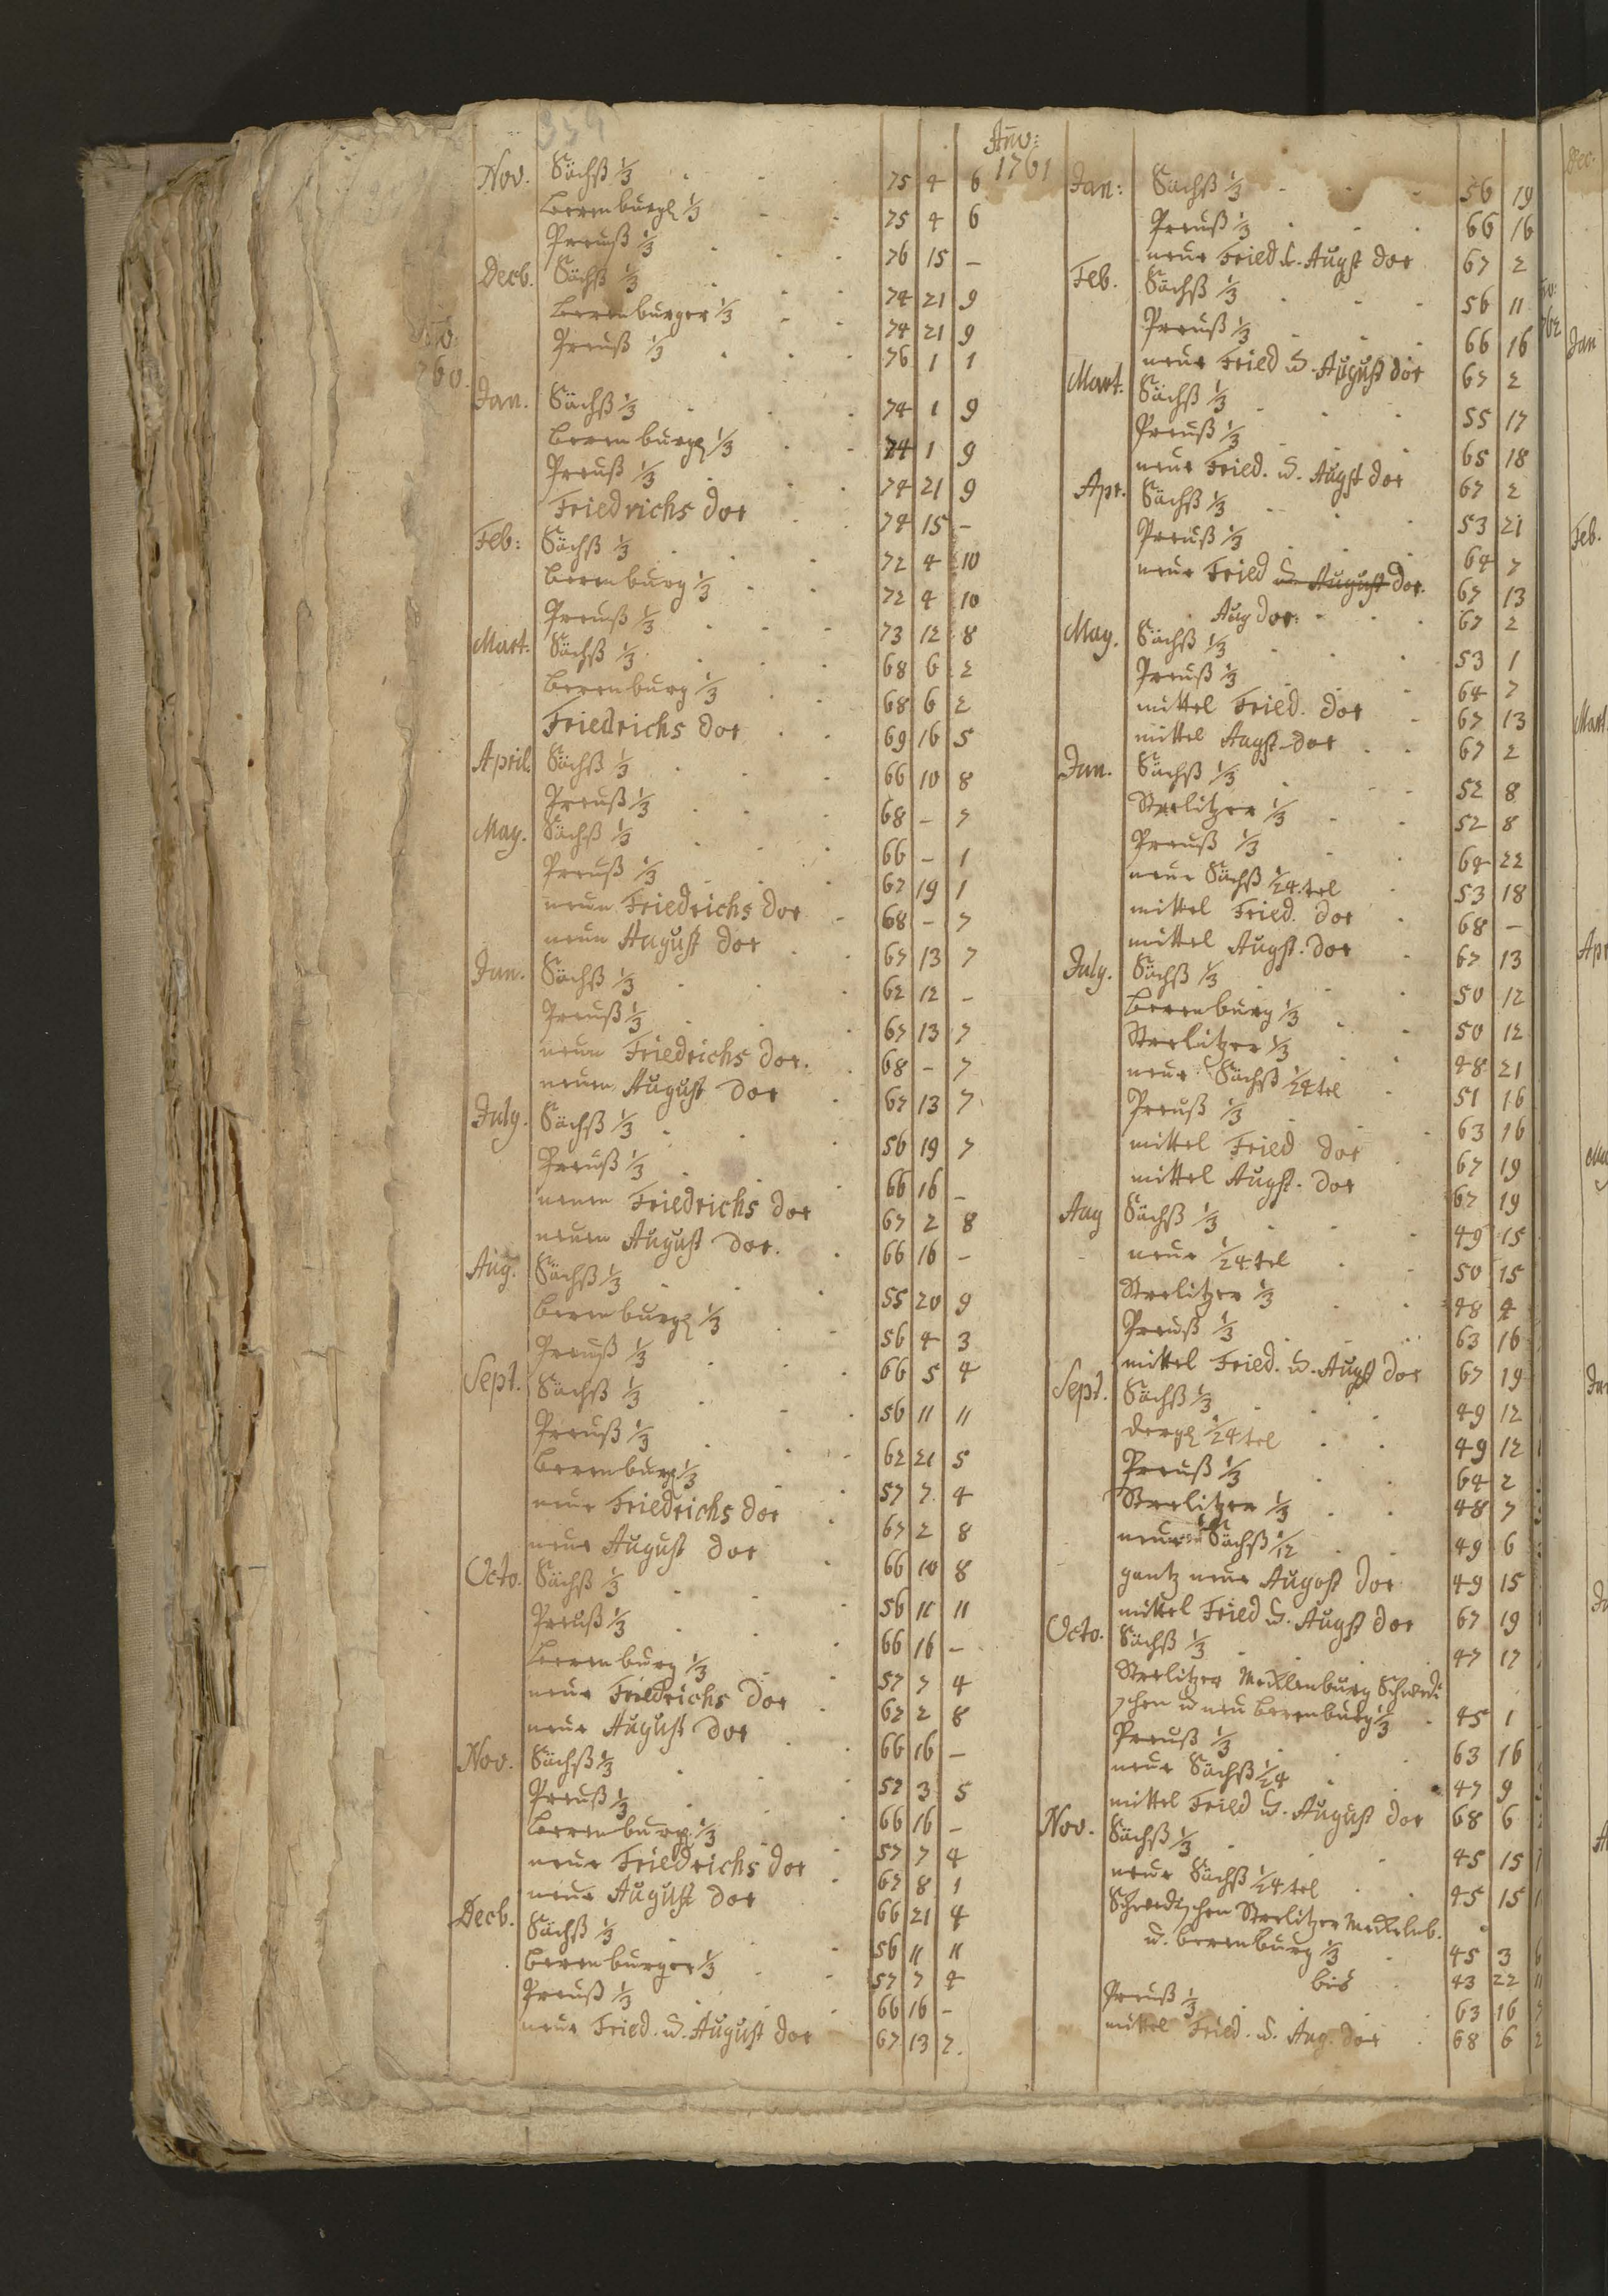 359
Nov. Sächß 1/3 75 4 6
Berenburgl 1/3 75 4 6
Preuß 1/3 76 15 –
Decb. Sächß 1/3 74 21 9
Berenburger 1/3 74 21 9
Preuß 1/3 76 1 1
760.
Jan. Sächß 1/3 74 1 9
Berenburgl 1/3 74 1 9
Preuß 1/3 74 21 9
Friedrichs dor 74 15 –
Feb: Sächß 1/3 72 4 10
Berenburg 1/3 72 4 10
Preuß 1/3 73 12 8
Mart. Sächß 1/3 68 6 2
Berenburg 1/3 68 6 2
Friedrichs dor 69 16 5
April. Sächß 1/3 66 10 8
Preuß 1/3 68 – 7
May. Sächß 1/3 66 – 1
Preuß 1/3 67 19 1
neue Friedrichs dor 68 – 7
neue August dor 67 13 7
Jun. Sächß 1/3 62 12 –
Preuß 1/3 67 13 7
neue Friedrichs dor. 68 – 7
neuen August dor 67 13 7
July. Sächß 1/3 56 19 7
Preuß 1/3 66 16 –
neuen Friedrichs dor 67 2 8
neuen August dor. 66 16 –
Aug. Sächß 1/3 55 20 9
Berenburgl 1/3 56 4 3
Preuß 1/3 66 5 4
Sept. Sächß 1/3 56 11 11
Preuß 1/3 62 21 5
Berenburgl 1/3 57 7 4
neue Friedrichs dor 67 2 8
neue August dor 66 10 8
Octo. Sächß 1/3 56 11 11
Preuß 1/3 66 16 –
Berenburg 1/3 57 7 4
neue Friedrichs dor 67 2 8
neue August dor 66 16 –
Nov. Sächß 1/3 57 3 5
Preuß 1/3 66 16 –
Berenburgl 1/3 57 7 4
neue Friedrichs dor 67 8 1
neue August dor 66 21 4
Decb. Sächß 1/3 56 11 11
Berenburger 1/3 57 7 4
Preuß 1/3 66 16 –
neue Fried. u. August dor 67 13 7.
Ano:
1761
Jan: Sächß 1/3 56 19
Preuß 1/3 66 16
neue Fried u. Augst dor 67 2
Feb. Sächß 1/3 56 11
Preuß 1/3 66 16
neue Fried u. August dor 67 2
Mart. Sächß 1/3 55 17
Preuß 1/3 65 18
neue Fried. u. Augst dor 67 2
Apr. Sächß 1/3 53 21
Preuß 1/3 64 7
neue Fried u. August dor. 67 13
Aug dor: 67 2
May. Sächß 1/3 53 1
Preuß 1/3 64 7
mittel Fried. dor 67 13
mittel Augst. dor 67 2
Jun. Sächß 1/3 52 8
Strelitzer 1/3 52 8
Preuß 1/3 64 22
neue Sächß 1/24.tel 53 18
mittel Fried. dor 68 –
mittel Augst. dor 67 13
July. Sächß 1/3 50 12
Berenburg 1/3 50 12
Strelitzer 1/3 48 21
neue Sächß 1/24 tel 51 16
Preuß 1/3 63 16
mittel Fried dor 67 19
mittel Augst. dor 67 19
Aug Sächß 1/3 49 15
neue 1/24.tel 50 15
Strelitzer 1/3 48 4
Preuß 1/3 63 16
mittel Fried. u. Augst dor 67 19
Sept. Sächß 1/3 49 12
dergl 1/24 tel 49 12
Preuß 1/3 64 2
Strelitzer 1/3 48 7
neue Sächß 1/12 49 6
gantz neue Augost dor 49 15
mittel Fried u. Augst dor 67 19
Octo. Sächß 1/3 47 17
Strelitzer Mecklenburg Schwedi
schen u neu Berenburg 1/3 45 1
Preuß 1/3 63 16
neue Sächß 1/24 47 9
mittel Fried u. August dor 68 6
Nov. Sächß 1/3 45 15
neue Sächß 1/24.tel 45 15
Schwedischen Strelitzer Meckelnb.
u. Berenburg 1/3 45 3 6
bis 43 22 11
Preuß 1/3 63 16 7
mittel Fried. u. Aug. dor 68 6 2
Dec.
762
Jan
Feb.
Mart
Apr